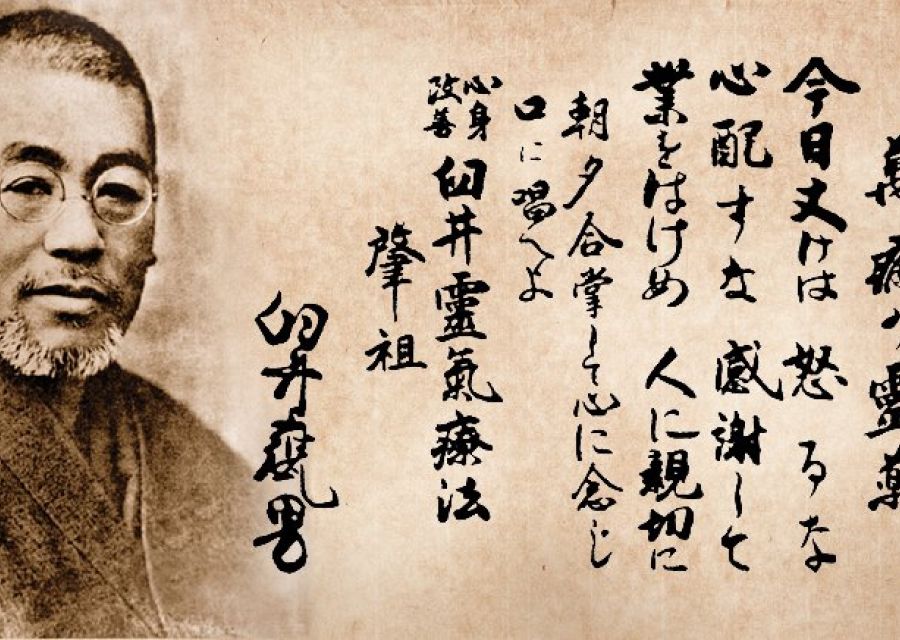 萬病の靈薬
今日丈けは 怒るな
心配すな 感謝して
業をはけめ 人に親切に
朝夕合掌して心に念じ
口に唱へよ
心身
改善
臼井靈氣療法
肇祖
臼井甕男